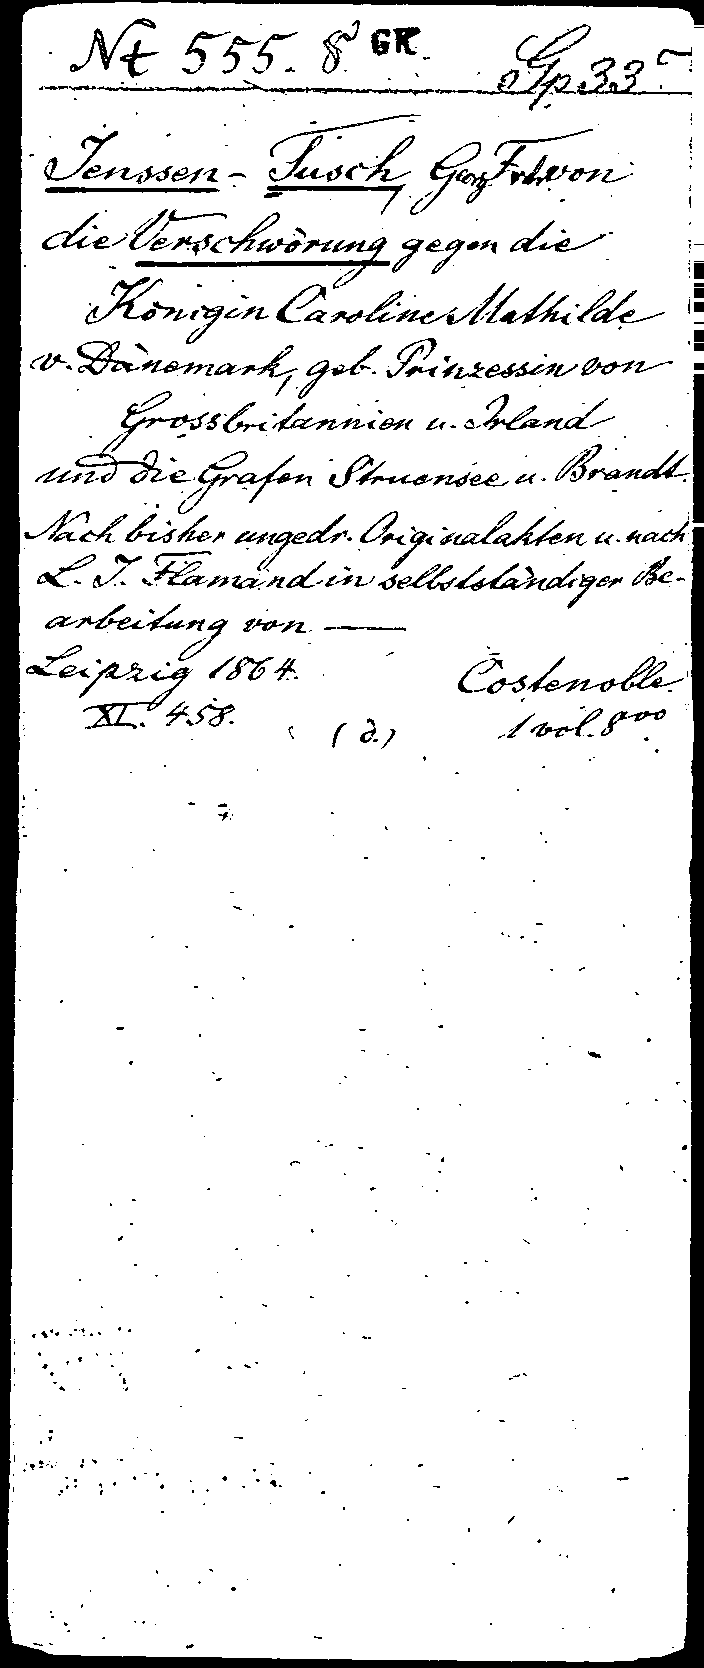 Nt 555. 8° GK. Gp 33
Jenssen - Tusch, Georg Frdr von
die Verschwörung gegen die
Königin Caroline Mathilde
v. Dänemark, geb. Prinzessin von
Grossbritannien u. Irland
und die Grafen Struensee u. Brandt.
Nach bisher ungedr. Originalakten u. nach
L. J. Flamand in selbstständiger Be-
arbeitung von —
Leipzig 1864. Costenoble.
XI. 458. (d.) 1 vol. 8ᵛᵒ